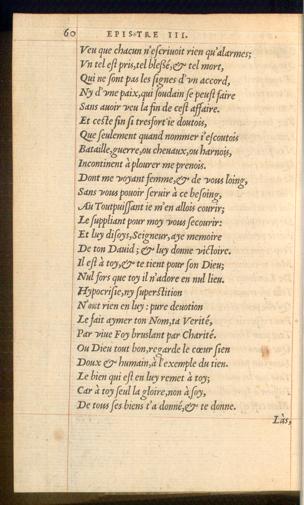 60 EPISTRE III.
Veu que chacun n'eſcriuoit rien qu'alarmes;
Vn tel eſt pris, tel bleßé, & tel mort,
Qui ne ſont pas les ſignes d'vn accord,
Ny d'vne paix, qui ſoudain ſe peuſt faire
Sans auoir veu la fin de ceſt affaire.
Et ceſte fin ſi treſfort ie doutois,
Que ſeulement quand nommer i'eſcoutois
Bataille, guerre, ou cheuaux, ou harnois,
Incontinent à plourer me prenois.
Dont me voyant femme, & de vous loing,
Sans vous pouoir ſeruir à ce beſoing,
Au Toutpuiſſant ie m'en allois courir;
Le ſuppliant pour moy vous ſecourir:
Et luy diſoys, Seigneur, aye memoire
De ton Dauid; & luy donne victoire.
Il eſt à toy, & te tient pour ſon Dieu;
Nul fors que toy il n'adore en nul lieu.
Hypocriſie, ny ſuperſtition
N'ont rien en luy: pure deuotion
Le fait aymer ton Nom, ta Verité,
Par viue Foy bruſlant par Charité.
Ou Dieu tout bon, regarde le cœur ſien
Doux & humain, à l'exemple du tien.
Le bien qui eſt en luy remet à toy;
Car à toy ſeul la gloire, non à ſoy,
De tous ſes biens t'a donné, & te donne.
Làs,